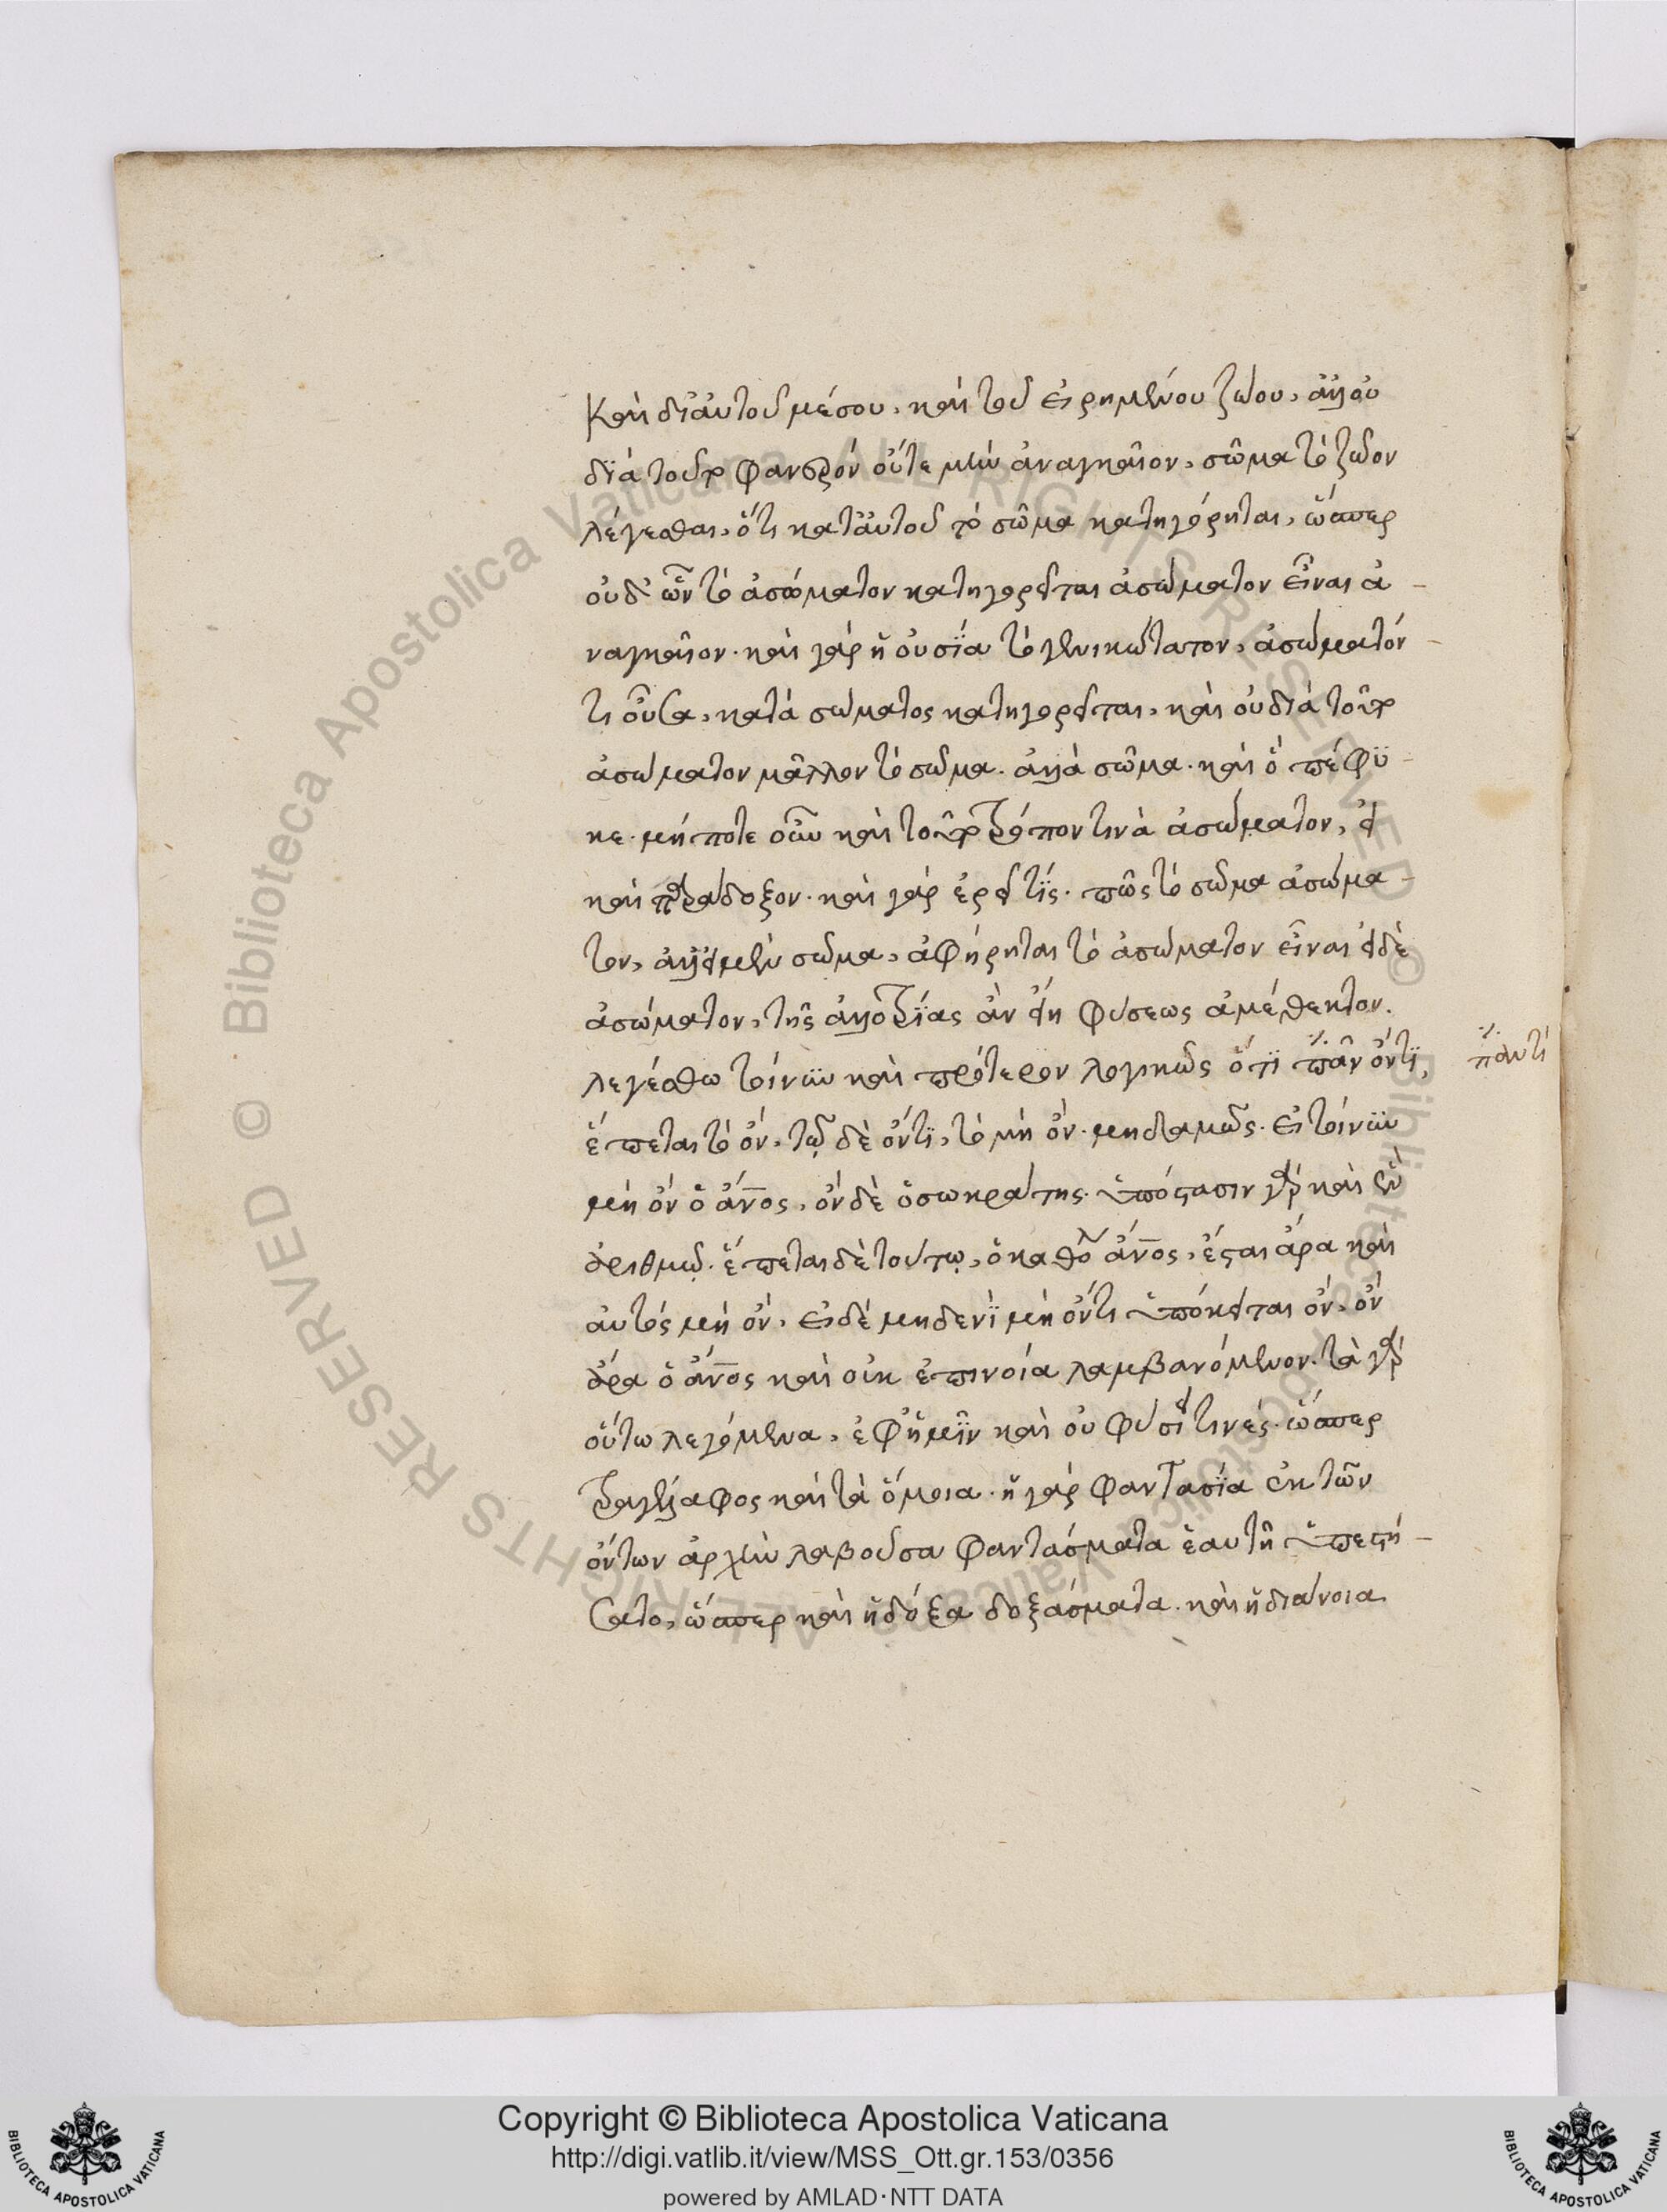 Καὶ δι' αὐτοῦ μέσου, καὶ τοῦ εἰρημένου ζώου, ἀλλ' οὐ
διὰ τοῦτο φανερὸν οὔτε μὴν ἀναγκαῖον, σῶμα τὸ ζῶον
λέγεσθαι, ὅτι κατ' αὐτοῦ τὸ σῶμα κατηγόρηται, ὥσπερ
οὐδ' ὧν τὸ ἀσώματον κατηγορεῖται ἀσώματον εἶναι ἀ-
ναγκαῖον. καὶ γὰρ ἡ οὐσία τὸ γενικώτατον, ἀσώματόν
τι οὖσα, κατὰ σώματος κατηγορεῖται, καὶ οὐ διὰ τοῦτο
ἀσώματον μᾶλλον τὸ σῶμα. ἀλλὰ σῶμα. καὶ ὃ πέφυ-
κε. μήποτε οὖν καὶ τοῦτο τρόπον τινὰ ἀσώματον, εἰ
καὶ παράδοξον. καὶ γὰρ ἐρεῖ τίς. πῶς τὸ σῶμα ἀσώμα-
τον, ἀλλ' εἰ μὲν σῶμα, ἀφήρηται τὸ ἀσώματον εἶναι εἰ δὲ
ἀσώματον, τῆς ἀλλοτρίας ἂν εἴη φύσεως ἀμέθεκτον.
λεγέσθω τοίνυν καὶ πρότερον λογικῶς ὅτι πᾶν ὄντι,
παντὶ
ἕπεται τὸ ὄν, τῷ δὲ ὄντι, τὸ μὴ ὄν. μηδαμῶς. εἰ τοίνυν
μὴ ὂν ὁ ἄνος, ὂν δὲ ὁ σωκράτης. ὑπόστασιν γὰρ καὶ ἓν
ἀριθμῷ. ἕπεται δὲ τούτῳ, ὁ καθόλου ἄνος, ἔσται ἄρα καὶ
αὐτὸς μὴ ὄν, εἰ δὲ μηδενὶ μὴ ὄντι ὑπόκειται ὄν, ὂν
ἄρα ὁ ἄνος καὶ οὐκ ἐπινοία λαμβανόμενον. τὰ γὰρ
οὕτω λεγόμενα, ἐφ' ἡμῖν καὶ οὐ φύσει τινές. ὥσπερ
τραγέλαφος καὶ τὰ ὅμοια. ἡ γὰρ φαντασία ἐκ τῶν
ὄντων ἀρχὴν λαβοῦσα φαντάσματα ἑαυτῇ ὑπεστή-
σατο, ὥσπερ καὶ ἡ δόξα δοξάσματα. καὶ ἡ διάνοια
Copyright © Biblioteca Apostolica Vaticana
http://digi.vatlib.it/view/MSS_Ott.gr.153/0356
powered by AMLAD·NTT DATA